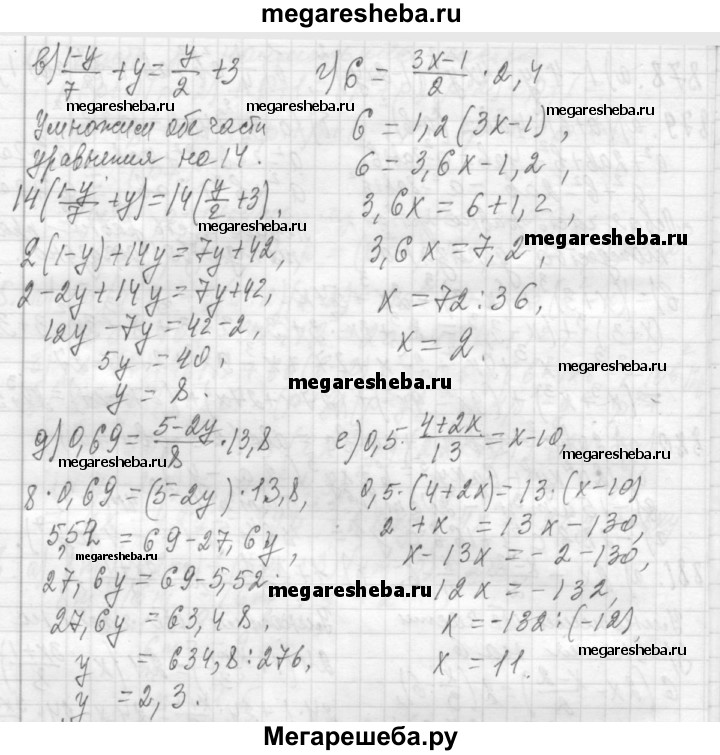 megaresheba.ru
в) (1-y)/7 + y = y/2 + 3
megaresheba.ru
Умножим обе части
уравнения на 14.
14((1-y)/7 + y) = 14(y/2 + 3),
megaresheba.ru
2(1-y)+14y=7y+42,
2-2y+14y=7y+42,
12y-7y=42-2,
5y=40,
y=8.
г) 6 = (3x-1)/2 · 2,4
megaresheba.ru
6=1,2(3x-1),
6=3,6x-1,2,
megaresheba.ru
3,6x=6+1,2,
megaresheba.ru
3,6x=7,2,
x=72:36,
x=2.
megaresheba.ru
megaresheba.ru
д) 0,69 = (5-2y)/8 · 13,8
megaresheba.ru
8·0,69=(5-2y)·13,8,
5,52=69-27,6y,
megaresheba.ru
27,6y=69-5,52.
27,6y=63,48.
y=634,8:276,
y=2,3.
е) 0,5· (4+2x)/13 = x-10,
megaresheba.ru
0,5·(4+2x)=13·(x-10)
2+x=13x-130,
x-13x=-2-130,
megaresheba.ru
12x=-132,
x=-132:(-12),
megaresheba.ru
x=11.
Мегарешеба.ру